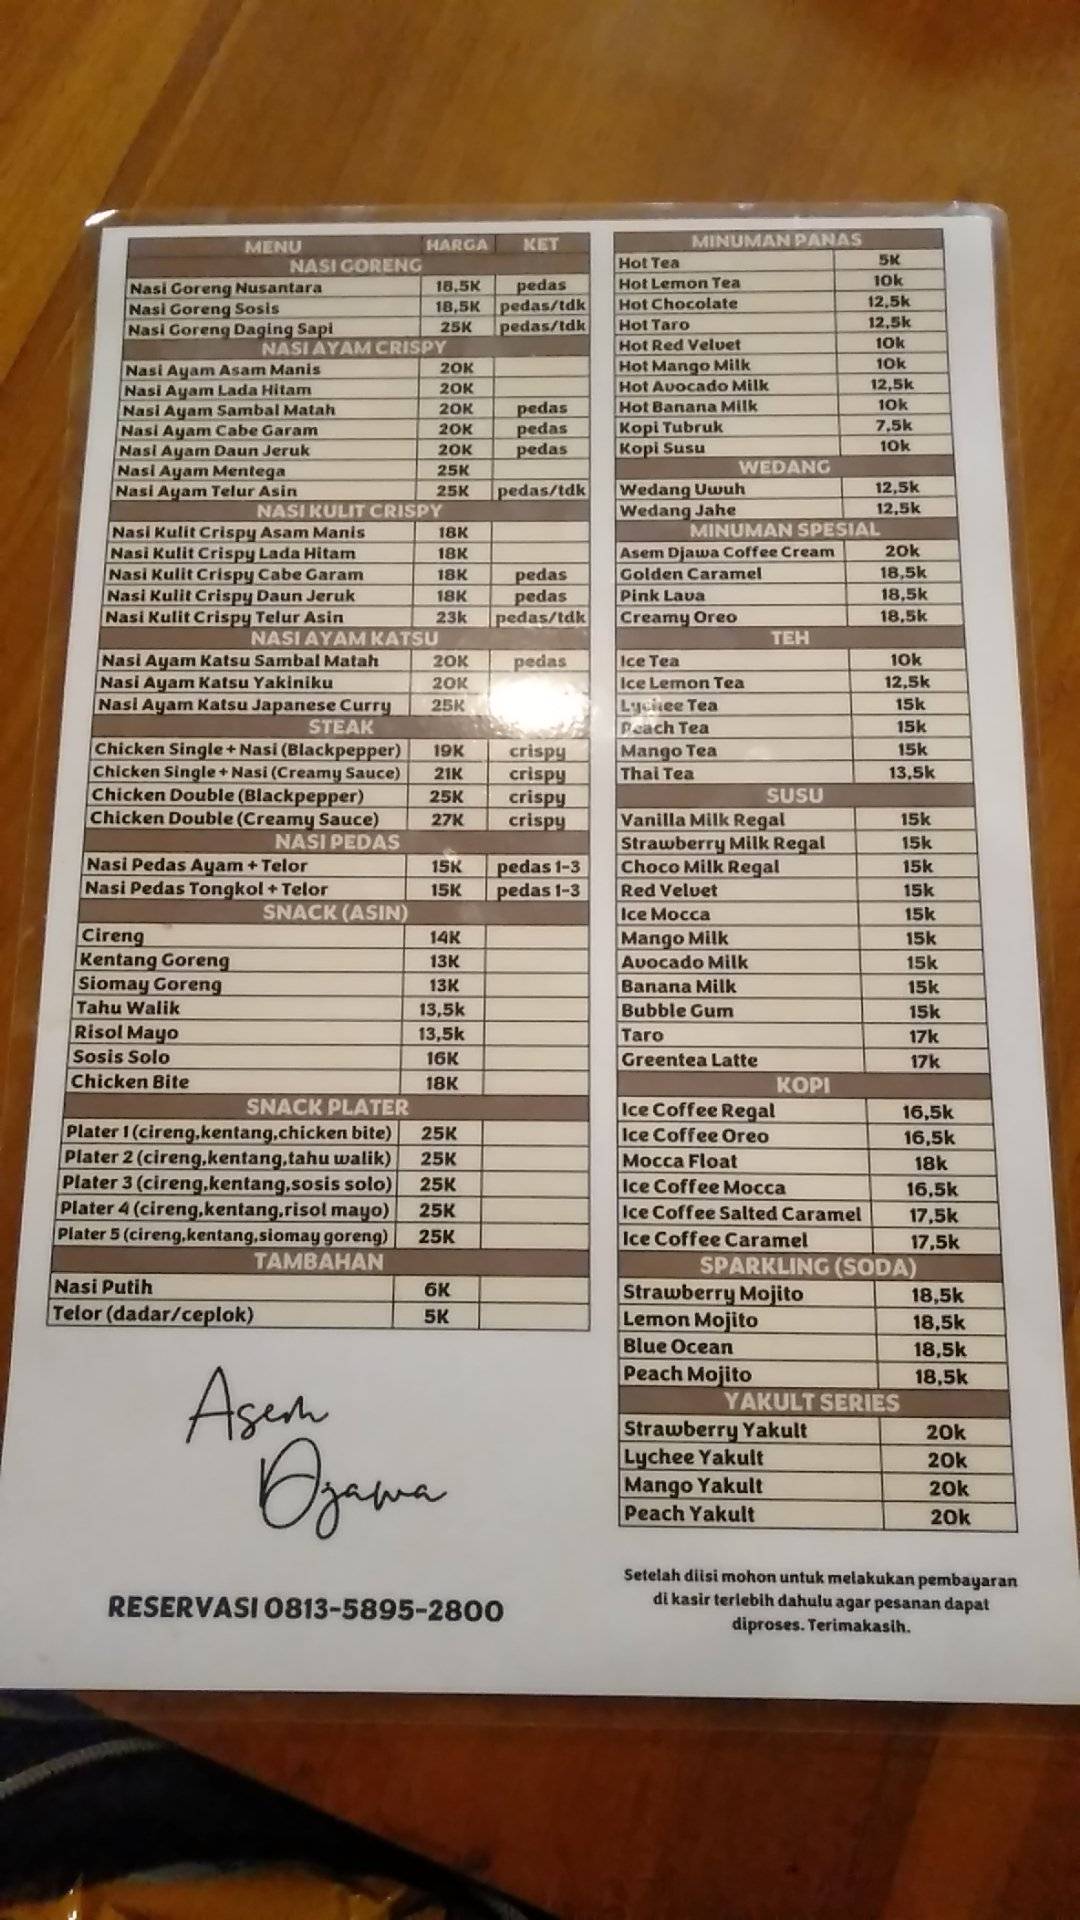 MENU HARGA KET
NASI GORENG
Nasi Goreng Nusantara 18,5K pedas
Nasi Goreng Sosis 18,5K pedas/tdk
Nasi Goreng Daging Sapi 25K pedas/tdk
NASI AYAM CRISPY
Nasi Ayam Asam Manis 20K
Nasi Ayam Lada Hitam 20K
Nasi Ayam Sambal Matah 20K pedas
Nasi Ayam Cabe Garam 20K pedas
Nasi Ayam Daun Jeruk 20K pedas
Nasi Ayam Mentega 25K
Nasi Ayam Telur Asin 25K pedas/tdk
NASI KULIT CRISPY
Nasi Kulit Crispy Asam Manis 18K
Nasi Kulit Crispy Lada Hitam 18K
Nasi Kulit Crispy Cabe Garam 18K pedas
Nasi Kulit Crispy Daun Jeruk 18K pedas
Nasi Kulit Crispy Telur Asin 23k pedas/tdk
NASI AYAM KATSU
Nasi Ayam Katsu Sambal Matah 20K pedas
Nasi Ayam Katsu Yakiniku 20K
Nasi Ayam Katsu Japanese Curry 25K
STEAK
Chicken Single + Nasi (Blackpepper) 19K crispy
Chicken Single + Nasi (Creamy Sauce) 21K crispy
Chicken Double (Blackpepper) 25K crispy
Chicken Double (Creamy Sauce) 27K crispy
NASI PEDAS
Nasi Pedas Ayam + Telor 15K pedas 1-3
Nasi Pedas Tongkol + Telor 15K pedas 1-3
SNACK (ASIN)
Cireng 14K
Kentang Goreng 13K
Siomay Goreng 13K
Tahu Walik 13,5k
Risol Mayo 13,5k
Sosis Solo 16K
Chicken Bite 18K
SNACK PLATER
Plater 1 (cireng,kentang,chicken bite) 25K
Plater 2 (cireng,kentang,tahu walik) 25K
Plater 3 (cireng,kentang,sosis solo) 25K
Plater 4 (cireng,kentang,risol mayo) 25K
Plater 5 (cireng,kentang,siomay goreng) 25K
TAMBAHAN
Nasi Putih 6K
Telor (dadar/ceplok) 5K
Asem
Djawa
RESERVASI 0813-5895-2800
MINUMAN PANAS
Hot Tea 5K
Hot Lemon Tea 10k
Hot Chocolate 12,5k
Hot Taro 12,5k
Hot Red Velvet 10k
Hot Mango Milk 10k
Hot Avocado Milk 12,5k
Hot Banana Milk 10k
Kopi Tubruk 7,5k
Kopi Susu 10k
WEDANG
Wedang Uwuh 12,5k
Wedang Jahe 12,5k
MINUMAN SPESIAL
Asem Djawa Coffee Cream 20k
Golden Caramel 18,5k
Pink Lava 18,5k
Creamy Oreo 18,5k
TEH
Ice Tea 10k
Ice Lemon Tea 12,5k
Lychee Tea 15k
Peach Tea 15k
Mango Tea 15k
Thai Tea 13,5k
SUSU
Vanilla Milk Regal 15k
Strawberry Milk Regal 15k
Choco Milk Regal 15k
Red Velvet 15k
Ice Mocca 15k
Mango Milk 15k
Avocado Milk 15k
Banana Milk 15k
Bubble Gum 15k
Taro 17k
Greentea Latte 17k
KOPI
Ice Coffee Regal 16,5k
Ice Coffee Oreo 16,5k
Mocca Float 18k
Ice Coffee Mocca 16,5k
Ice Coffee Salted Caramel 17,5k
Ice Coffee Caramel 17,5k
SPARKLING (SODA)
Strawberry Mojito 18,5k
Lemon Mojito 18,5k
Blue Ocean 18,5k
Peach Mojito 18,5k
YAKULT SERIES
Strawberry Yakult 20k
Lychee Yakult 20k
Mango Yakult 20k
Peach Yakult 20k
Setelah diisi mohon untuk melakukan pembayaran
di kasir terlebih dahulu agar pesanan dapat
diproses. Terimakasih.